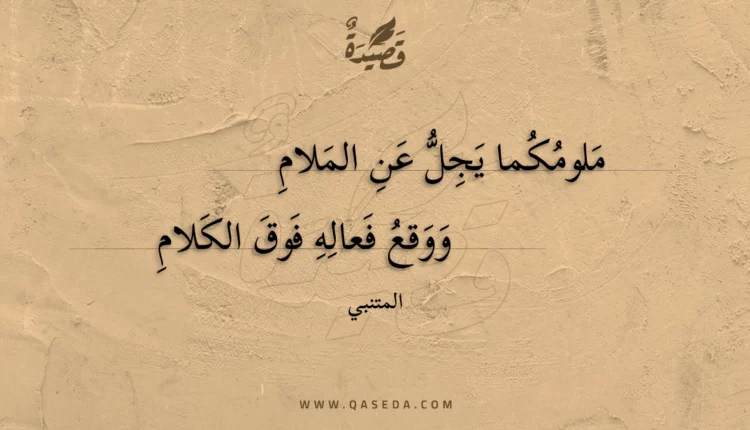 قَصِيدَةٌ
مَلومُكُما يَجِلُّ عَنِ المَلامِ
وَوَقعُ فَعالِهِ فَوقَ الكَلامِ
المتنبي
WWW.QASEDA.COM